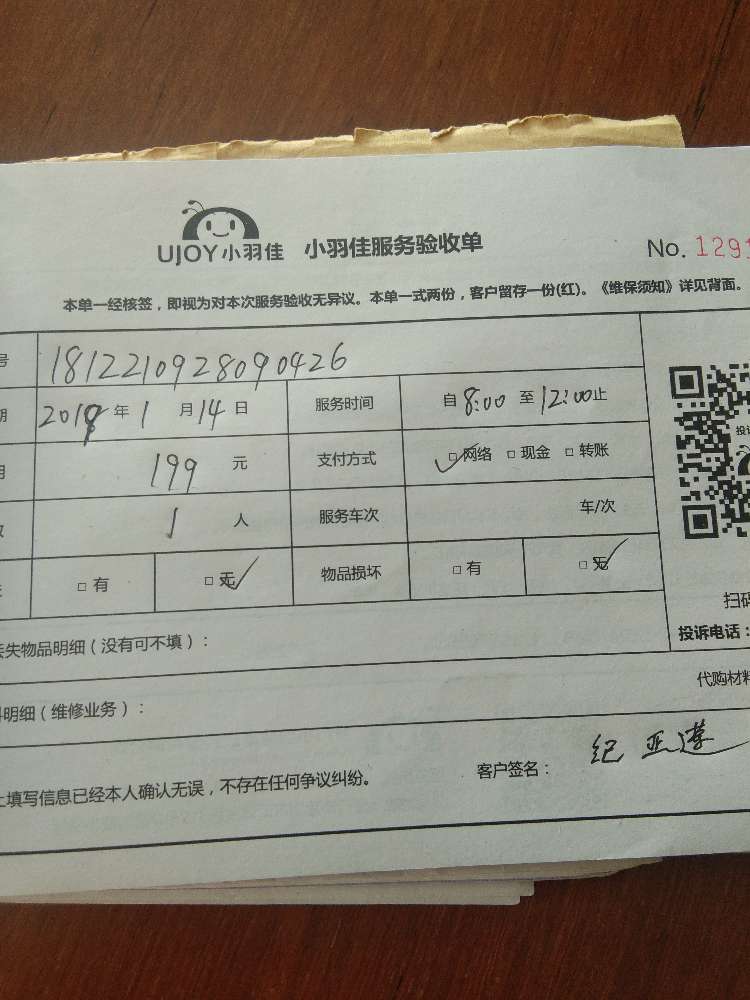 UJOY小羽佳 小羽佳服务验收单 No. 1291
本单一经核签，即视为对本次服务验收无异议。本单一式两份，客户留存一份(红)。《维保须知》详见背面。
号 1812210928090426
期 2019年1月14日 服务时间 自8:00至12:00止
用 199元 支付方式 □网络 □现金 □转账
数 1人 服务车次 车/次
□有 □无 物品损坏 □有 □无
扫码
投诉电话：
丢失物品明细（没有可不填）：
料明细（维修业务）： 代购材料
上填写信息已经本人确认无误，不存在任何争议纠纷。 客户签名：纪亚